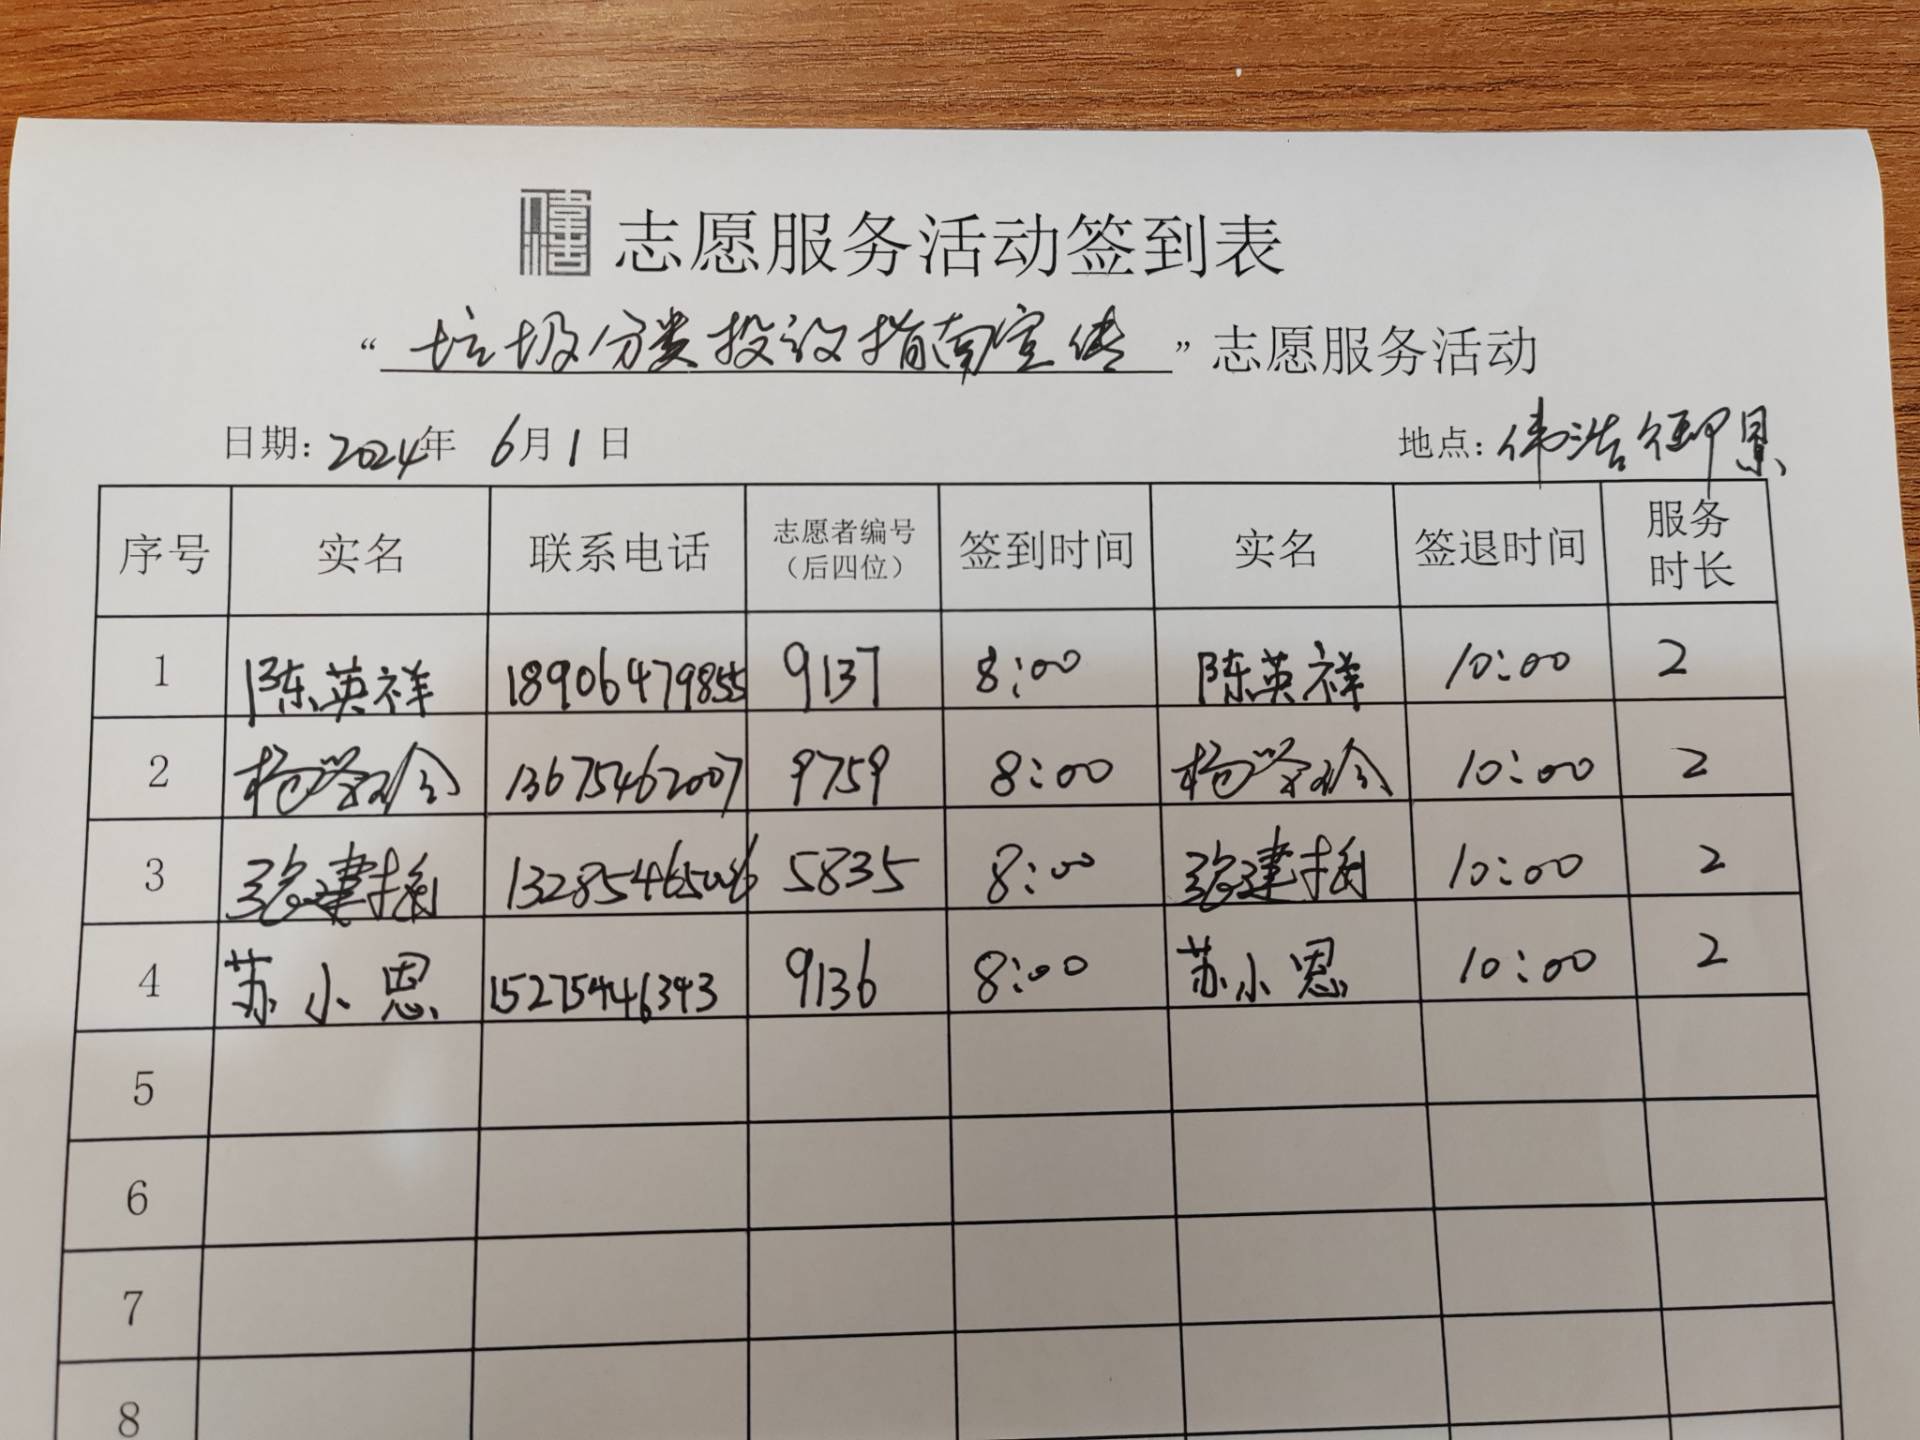 志愿服务活动签到表
“垃圾分类投放指南宣传”志愿服务活动
日期：2024年 6月1日 地点：伟浩御景
序号 实名 联系电话 志愿者编号（后四位） 签到时间 实名 签退时间 服务时长
1 陈英祥 18906479855 9137 8:00 陈英祥 10:00 2
2 杨学玲 13675462007 9759 8:00 杨学玲 10:00 2
3 5835 8:00 10:00 2
4 苏小恩 15275446343 9136 8:00 苏小恩 10:00 2
5
6
7
8